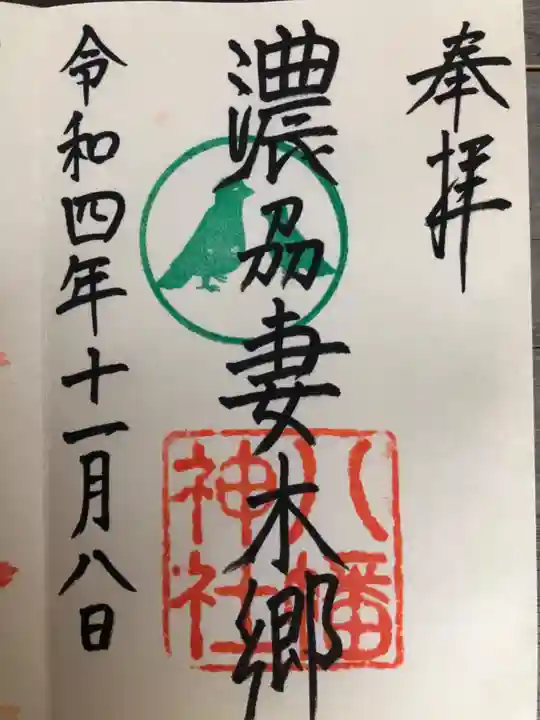 奉拝
濃刕妻木郷
八幡
神社
令和四年十一月八日